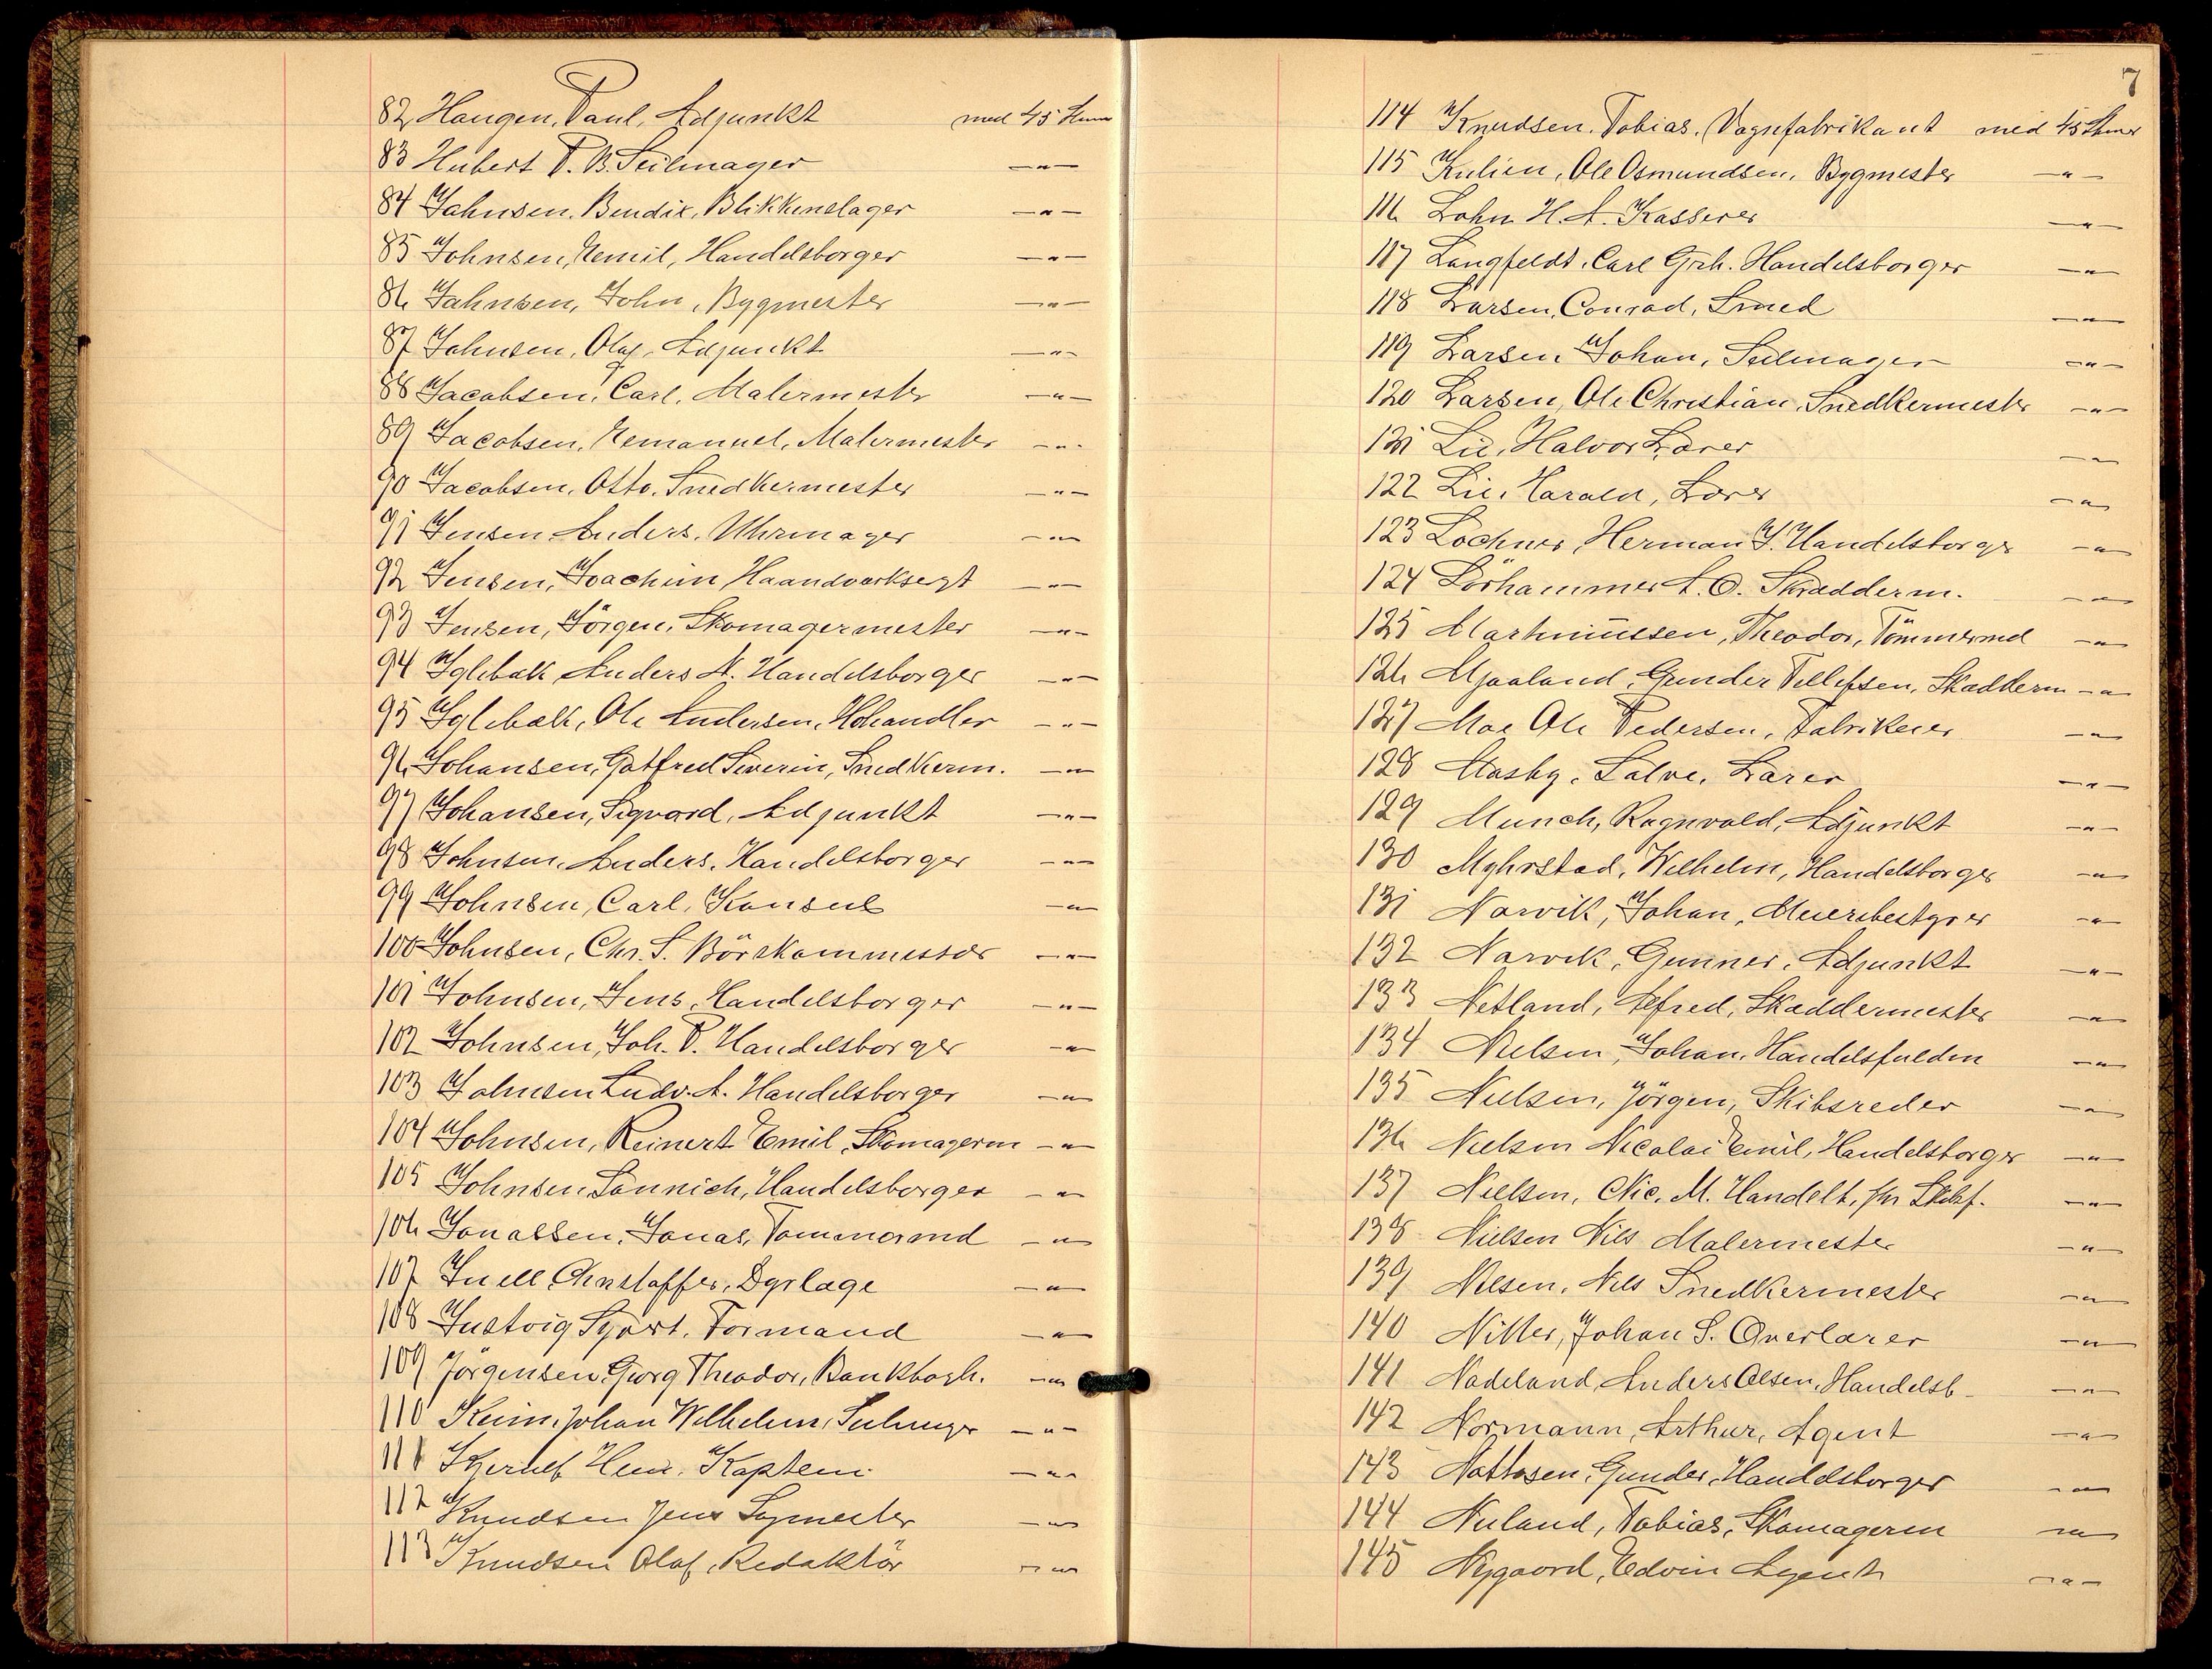 82 Haugen, Paul, Adjunkt med 45 Stemmer
83 Hubert P. B. Seilmager —"—
84 Jahnsen, Bendix, Blikkenslager —"—
85 Johnsen, Emil, Handelsborger —"—
86 Jahnsen, John, Bygmester —"—
87 Johnsen, Olaf, Adjunkt —"—
88 Jacobsen, Carl, Malermester —"—
89 Jacobsen, Emanuel, Malermester —"—
90 Jacobsen, Otto, Snedkermester —"—
91 Jensen Anders, Uhrmager —"—
92 Jensen, Joachim Haandværksegt —"—
93 Jensen, Jörgen, Skomagermester —"—
94 Iglebæk Anders N. Handelsborger —"—
95 Iglebæk, Ole Andersen, Hohandler —"—
96 Johansen, Gotfred Severin, Snedkerm. —"—
97 Johansen, Sigvard, Adjunkt —"—
98 Johnsen, Anders, Handelsborger —"—
99 Johnsen, Carl, Konsul —"—
100 Johnsen, Chr. S. Börskommessær —"—
101 Johnsen, Jens, Handelsborger —"—
102 Johnsen, Joh. P. Handelsborger —"—
103 Johnsen Ludv. A. Handelsborger —"—
104 Johnsen, Reinert Emil, Skomagerm —"—
105 Johnsen Sönnich, Handelsborger —"—
106 Jonassen, Jonas, Tömmermd —"—
107 Juell Christoffer, Dyrlæge —"—
108 Justvig Syvert, Formand —"—
109 Jörgensen Georg Theodor, Bankbogh. —"—
110 Keim, Johan Wilhelm, Seilmager —"—
111 Kjerulf Henr. Kaptein —"—
112 Knudsen Jens Bygmester —"—
113 Knudsen Olaf, Redaktör —"—
7
114 Knudsen, Tobias, Vognfabrikant med 45 Stemmer
115 Kulien, Ole Osmundsen, Bygmester —"—
116 Lohn H. A. Kasserer —"—
117 Langfeldt, Carl Grh. Handelsborger —"—
118 Larsen, Conrad, Smed —"—
119 Larsen Johan, Seilmager —"—
120 Larsen, Ole Christian, Snedkermester —"—
121 Lie, Halvor Lærer —"—
122 Lie, Harald, Lærer —"—
123 Lochner, Herman J. Handelsborger —"—
124 Lörhammer A. O. Skrædderm. —"—
125 Martiniussen, Theodor, Tömmermd —"—
126 Mjaaland, Gunder Tellefsen, Skædderm —"—
127 Moe Ole Pedersen, Fabrikeier —"—
128 Mosby, Salve, Lærer —"—
129 Munch, Ragnvald, Adjunkt —"—
130 Myhrstad, Wilhelm, Handelsborger —"—
131 Narvik, Johan, Meieribestyrer —"—
132 Narvik, Gunner, Adjunkt —"—
133 Netland, Alfred, Skæddermester —"—
134 Nielsen, Johan, Handelsfuldm —"—
135 Nielsen, Jörgen, Skibsreder —"—
136 Nielsen Nicolai Emil, Handelsborger —"—
137 Nielsen, Nic. M. Handelb. fm Skibsf. —"—
138 Nielsen Nils Malermester —"—
139 Nilsen, Nils Snedkermester —"—
140 Nitter, Johan S. Overlærer —"—
141 Nodeland, Anders Olsen, Handelsb. —"—
142 Normann, Arthur, Agent —"—
143 Nottosen, Gunder, Handelsborger —"—
144 Nuland, Tobias, Skomagerm —"—
145 Nygaard, Edvin Agent —"—